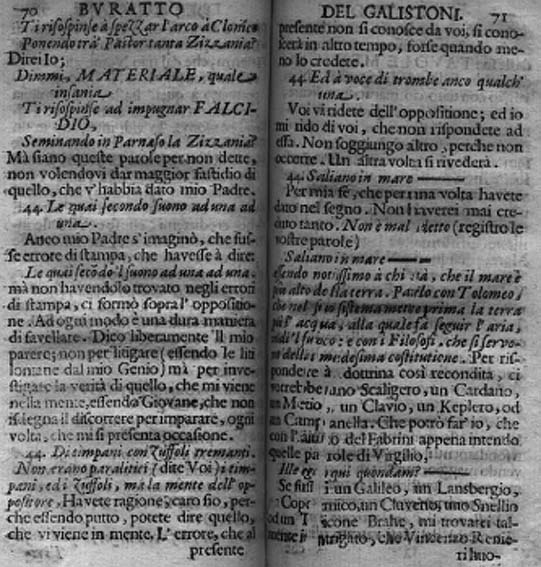 70 BVRATTO
Ti rispinse à spezzar l'arco à Clonico
Ponendo trà Pastor tanta Zizzania?
Direi Io;
Dimmi, MATERIALE, quale
insania
Ti risospinse ad impugnar FALCI-
DIO,
Seminando in Parnaso la Zizzania?
Mà siano queste parole per non dette,
non volendovi dar maggior fastidio di
quello, che v'habbia dato mio Padre.
44. Le quai secondo suono ad una ad
una.
Anco mio Padre s'imaginò, che fus-
se errore di stampa, che havesse à dire:
Le quai secōdo 'l suono ad una ad una.
mà non havendolo trovato negli errori
di stampa, ci formò sopra l'oppositio-
ne. Ad ogni modo è una dura maniera
di favellare. Dico liberamente 'll mio
parere; non per litigare (essendo le liti
lontane dal mio Genio) mà per inve-
stigare la verità di quello, che mi viene
nella mente, essendo Giovane, che non
isdegna il discorrere per imparare, ogni
volta, che mi si presenta occasione.
44. Di timpani con Zuffoli tremanti.
Non erano paralitici (dite Voi) i tim-
pani, ed i Zuffoli, ma la mente dell'op-
positore, Havete ragione; caro fio, per-
che essendo putto, potete dire quello,
che vi viene in mente. L'errore, che al
presente
DEL GALISTONI. 71
presente non si conosce da voi, si cono-
scerà in altro tempo, forse quando me-
no lo credere.
44 Ed à voce di trombe anco qualch'
una.
Voi vi ridete dell'oppositione; ed io
mi rido di voi, che non rispondete ad
essa. Non soggiungo altro, perche non
occorre. Un altra volta si rivederà.
44. Saliano in mare
Per mia fè, che per una volta havete
dato nel segno. Non haverei mai cre-
duto tanto. Non è mal detto (registro le
vostre parole)
Saliano in mare
essendo notissimo à chi stà, che il mare è
più alto della terra. Parlo con Tolomeo,
che nel suo sistema mette prima la terra
poi l'acqua, alla quale fà seguir l'aria,
ed il fuoco: e con i Filosofi, che si servo-
no della medesima costitutione. Per ris-
pondere à dottrina così recondita, ci
vorrebbe uno Scaligero, un Cardano,
un Metio, un Clavio, un Keplero, od
un Campanella. Che potrò far'io, che
con l'aiuto del Fabrini appena intendo
quelle parole di Virgilio;
Ille ego qui quondam?
Se fussi un Galileo, un Lansbergio,
un Copernico, un Cluverio, uno Snellio
od un Ticone Brahe, mi trovarei tal-
mente intrigato, che Vincenzo Renie-
ri huo-